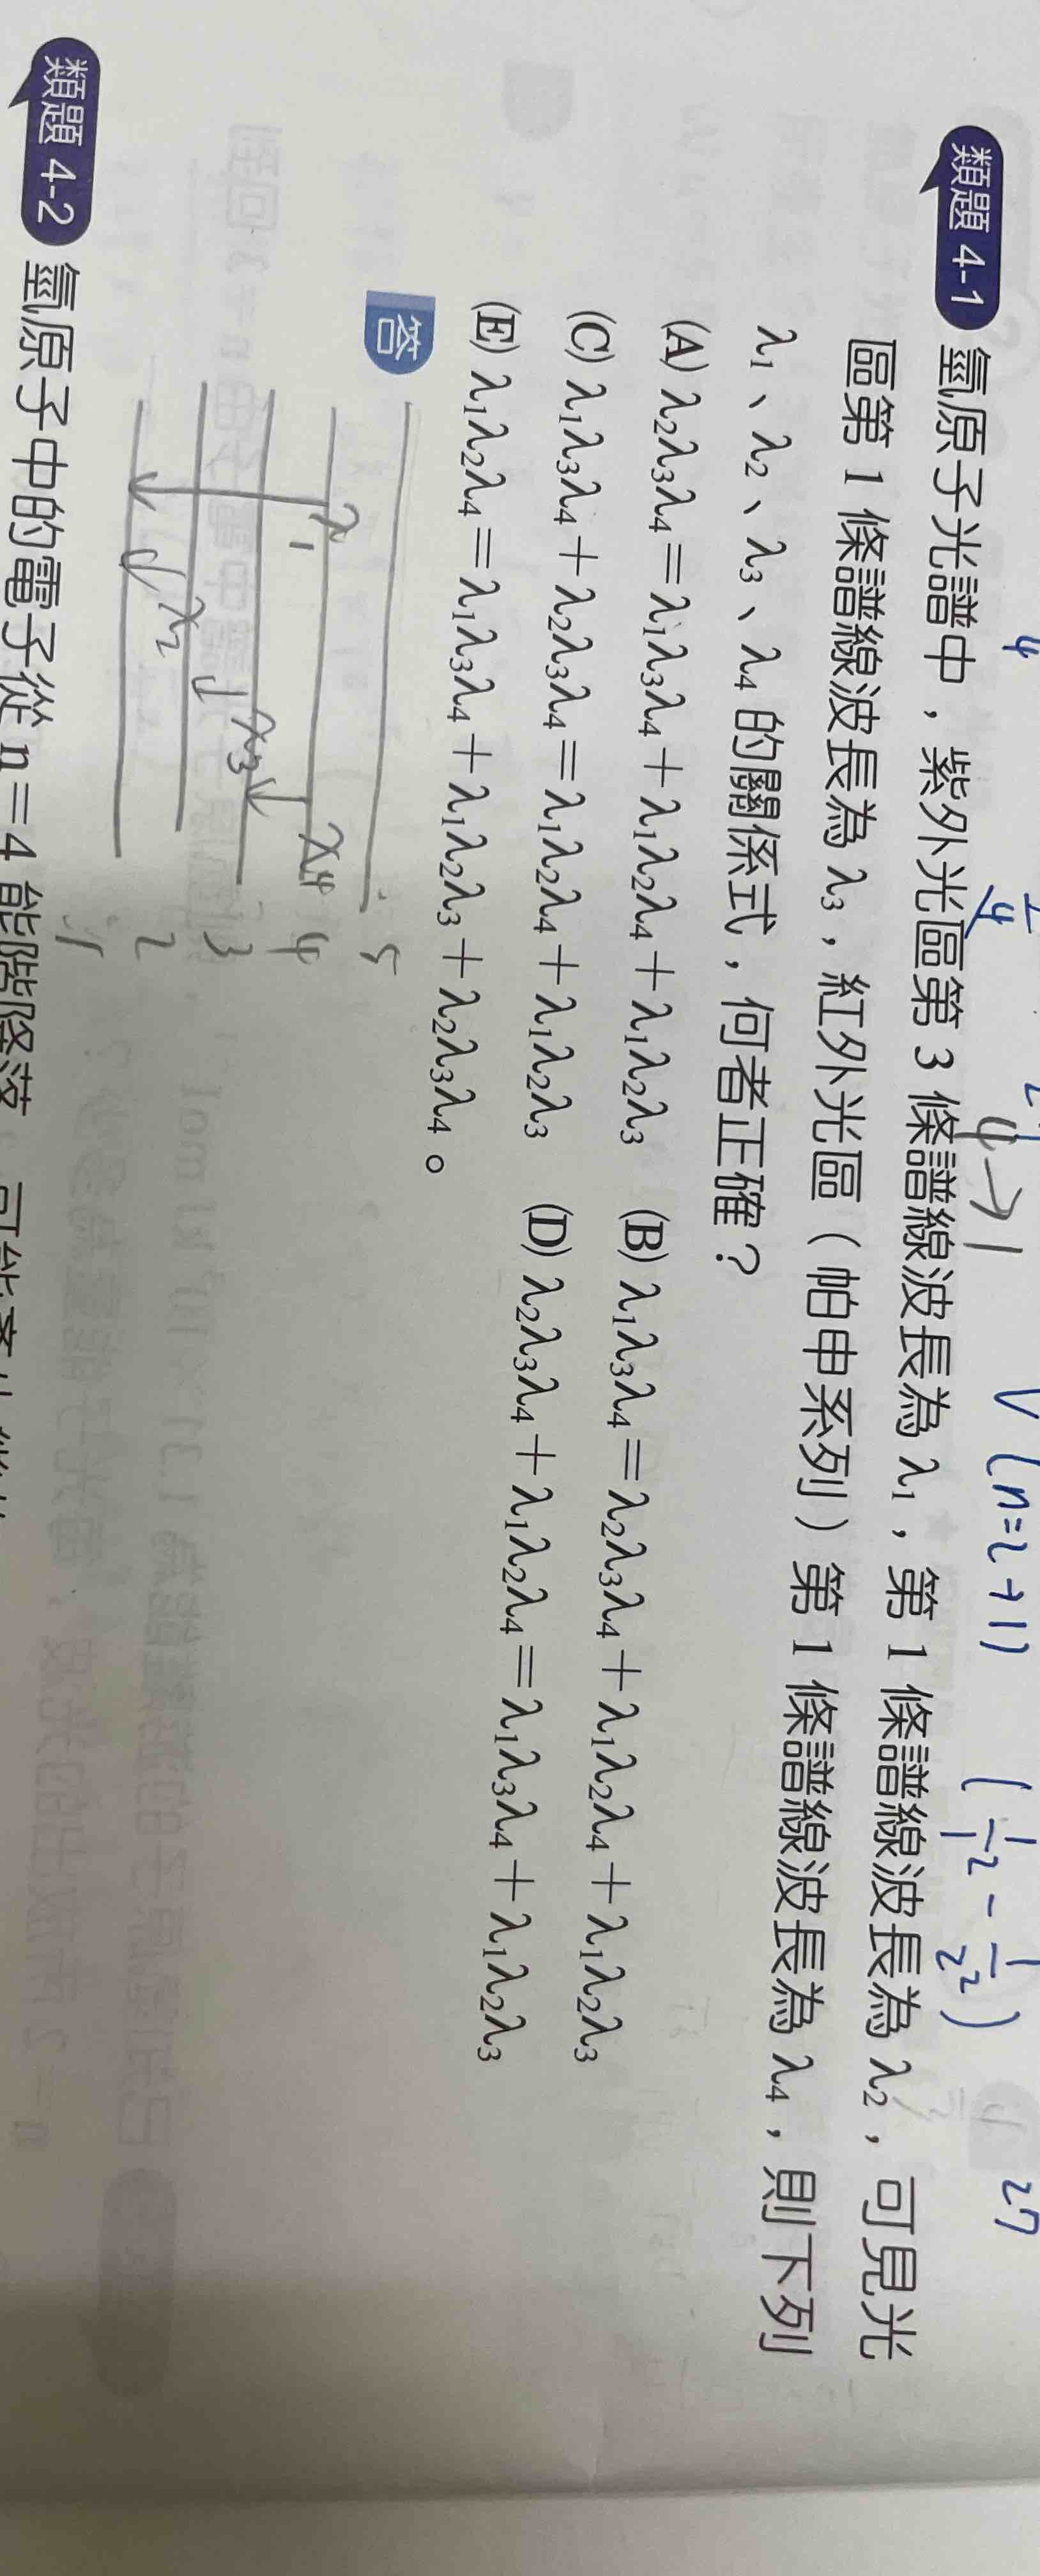 類題 4-1 氫原子光譜中，紫外光區第 3 條譜線波長為 λ₁，第 1 條譜線波長為 λ₂，可見光
區第 1 條譜線波長為 λ₃，紅外光區（帕申系列）第 1 條譜線波長為 λ₄，則下列
λ₁、λ₂、λ₃、λ₄ 的關係式，何者正確？
(A) λ₂λ₃λ₄＝λ₁λ₃λ₄＋λ₁λ₂λ₄＋λ₁λ₂λ₃ (B) λ₁λ₃λ₄＝λ₂λ₃λ₄＋λ₁λ₂λ₄＋λ₁λ₂λ₃
(C) λ₁λ₃λ₄＋λ₂λ₃λ₄＝λ₁λ₂λ₄＋λ₁λ₂λ₃ (D) λ₂λ₃λ₄＋λ₁λ₂λ₄＝λ₁λ₃λ₄＋λ₁λ₂λ₃
(E) λ₁λ₂λ₄＝λ₁λ₃λ₄＋λ₁λ₂λ₃＋λ₂λ₃λ₄。
答
4→1
(n=2→1)
(1/1² - 1/2²)
27
5
λ₁ λ₄ 4
λ₃ 3
λ₂ 2
1
類題 4-2 氫原子中的電子從 n＝4 能階降落